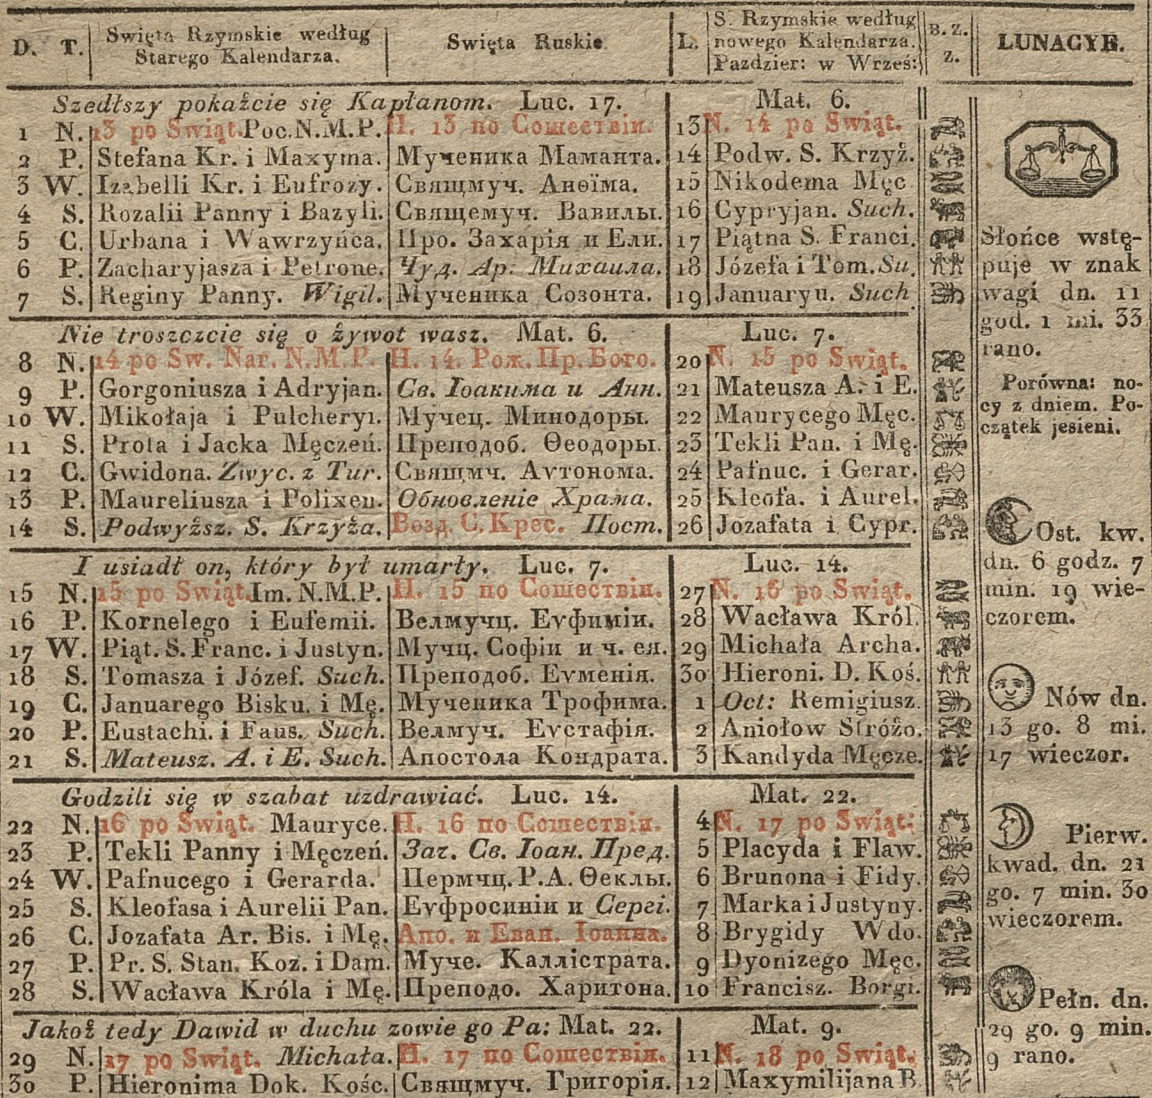 D. T. Swięta Rzymskie według Starego Kalendarza. Swięta Ruskie L. S. Rzymskie według nowego Kalendarza. Pazdzier: w Wrześ: B. Z. z. LUNACYE.
Szedłszy pokażcie się Kapłanom. Luc. 17. Mat. 6.
1 N. 13 po Swiąt. Poc. N. M. P. Н. 13 по Сошествіи. 13 N. 14 po Swiąt.
2 P. Stefana Kr. i Maxyma. Мученика Маманта. 14 Podw. S. Krzyż.
3 W. Izabelli Kr. i Eufrozy. Свящмуч. Анѳїма. 15 Nikodema Męc
4 S. Rozalii Panny i Bazyli. Свящемуч. Вавилы. 16 Cypryjan. Such.
5 C. Urbana i Wawrzyńca. Про. Захарія и Ели. 17 Piątna S. Franci.
6 P. Zacharyjasza i Petrone. Чуд. Ар. Михаила. 18 Józefa i Tom. Su.
7 S. Reginy Panny. Wigil. Мученика Созонта. 19 Januaryu. Such
Nie troszczcie się o żywot wasz. Mat. 6. Luc. 7.
8 N. 14 po Sw. Nar. N. M. P. Н. 14. Рож. Пр. Бого. 20 N. 15 po Swiąt.
9 P. Gorgoniusza i Adryjan. Св. Іоакима и Анн. 21 Mateusza A. i E.
10 W. Mikołaja i Pulcheryi. Мучец. Минодоры. 22 Maurycego Męc.
11 S. Prota i Jacka Męczeń. Преподоб. Ѳеодоры. 23 Tekli Pan. i Mę.
12 C. Gwidona. Zwyc. z Tur. Свящмч. Аѵтонома. 24 Pafnuc. i Gerar.
13 P. Maureliusza i Polixen. Обновленіе Храма. 25 Kleofa. i Aurel.
14 S. Podwyższ. S. Krzyża. Возд. С. Крес. Пост. 26 Jozafata i Cypr.
I usiadł on, który był umarły. Luc. 7. Luc. 14.
15 N. 15 po Swiąt. Im. N. M. P. Н. 15 по Сошествіи. 27 N. 16 po Swiąt.
16 P. Kornelego i Eufemii. Велмучц. Еѵфиміи. 28 Wacława Król.
17 W. Piąt. S. Franc. i Justyn. Мучц. Софіи и ч. ея. 29 Michała Archa.
18 S. Tomasza i Józef. Such. Преподоб. Еѵменія. 30 Hieroni. D. Koś.
19 C. Januarego Bisku. i Mę. Мученика Трофима. 1 Oct: Remigiusz.
20 P. Eustachi. i Faus. Such. Велмуч. Еѵстафія. 2 Aniołow Stróżo.
21 S. Mateusz. A. i E. Such. Апостола Кондрата. 3 Kandyda Męcze.
Godzili się w szabat uzdrawiać. Luc. 14. Mat. 22.
22 N. 16 po Swiąt. Mauryce. Н. 16 по Сошествіи. 4 N. 17 po Swiąt.
23 P. Tekli Panny i Męczeń. Зач. Св. Іоан. Пред. 5 Placyda i Flaw.
24 W. Pafnucego i Gerarda. Пермчц. Р. А. Ѳеклы. 6 Brunona i Fidy.
25 S. Kleofasa i Aurelii Pan. Еѵфросиніи и Сергі. 7 Marka i Justyny.
26 C. Jozafata Ar. Bis. i Mę. Апо. и Еван. Іоанна. 8 Brygidy Wdo.
27 P. Pr. S. Stan. Koz. i Dam. Муче. Каллістрата. 9 Dyonizego Męc.
28 S. Wacława Króla i Mę. Преподо. Харитона. 10 Francisz. Borgi.
Jakoż tedy Dawid w duchu zowie go Pa: Mat. 22. Mat. 9.
29 N. 17 po Swiąt. Michała. Н. 17 по Сошествія. 11 N. 18 po Swiąt.
30 P. Hieronima Dok. Kośc. Свящмуч. Григорія. 12 Maxymilijana B.
Słońce wstę-
puje w znak
wagi dn. 11
god. 1 mi. 33
rano.
Porówna: no-
cy z dniem. Po-
czątek jesieni.
Ost. kw.
dn. 6 godz. 7
min. 19 wie-
czorem.
Nów dn.
13 go. 8 mi.
17 wieczor.
Pierw.
kwad. dn. 21
go. 7 min. 30
wieczorem.
Pełn. dn.
29 go. 9 min.
9 rano.